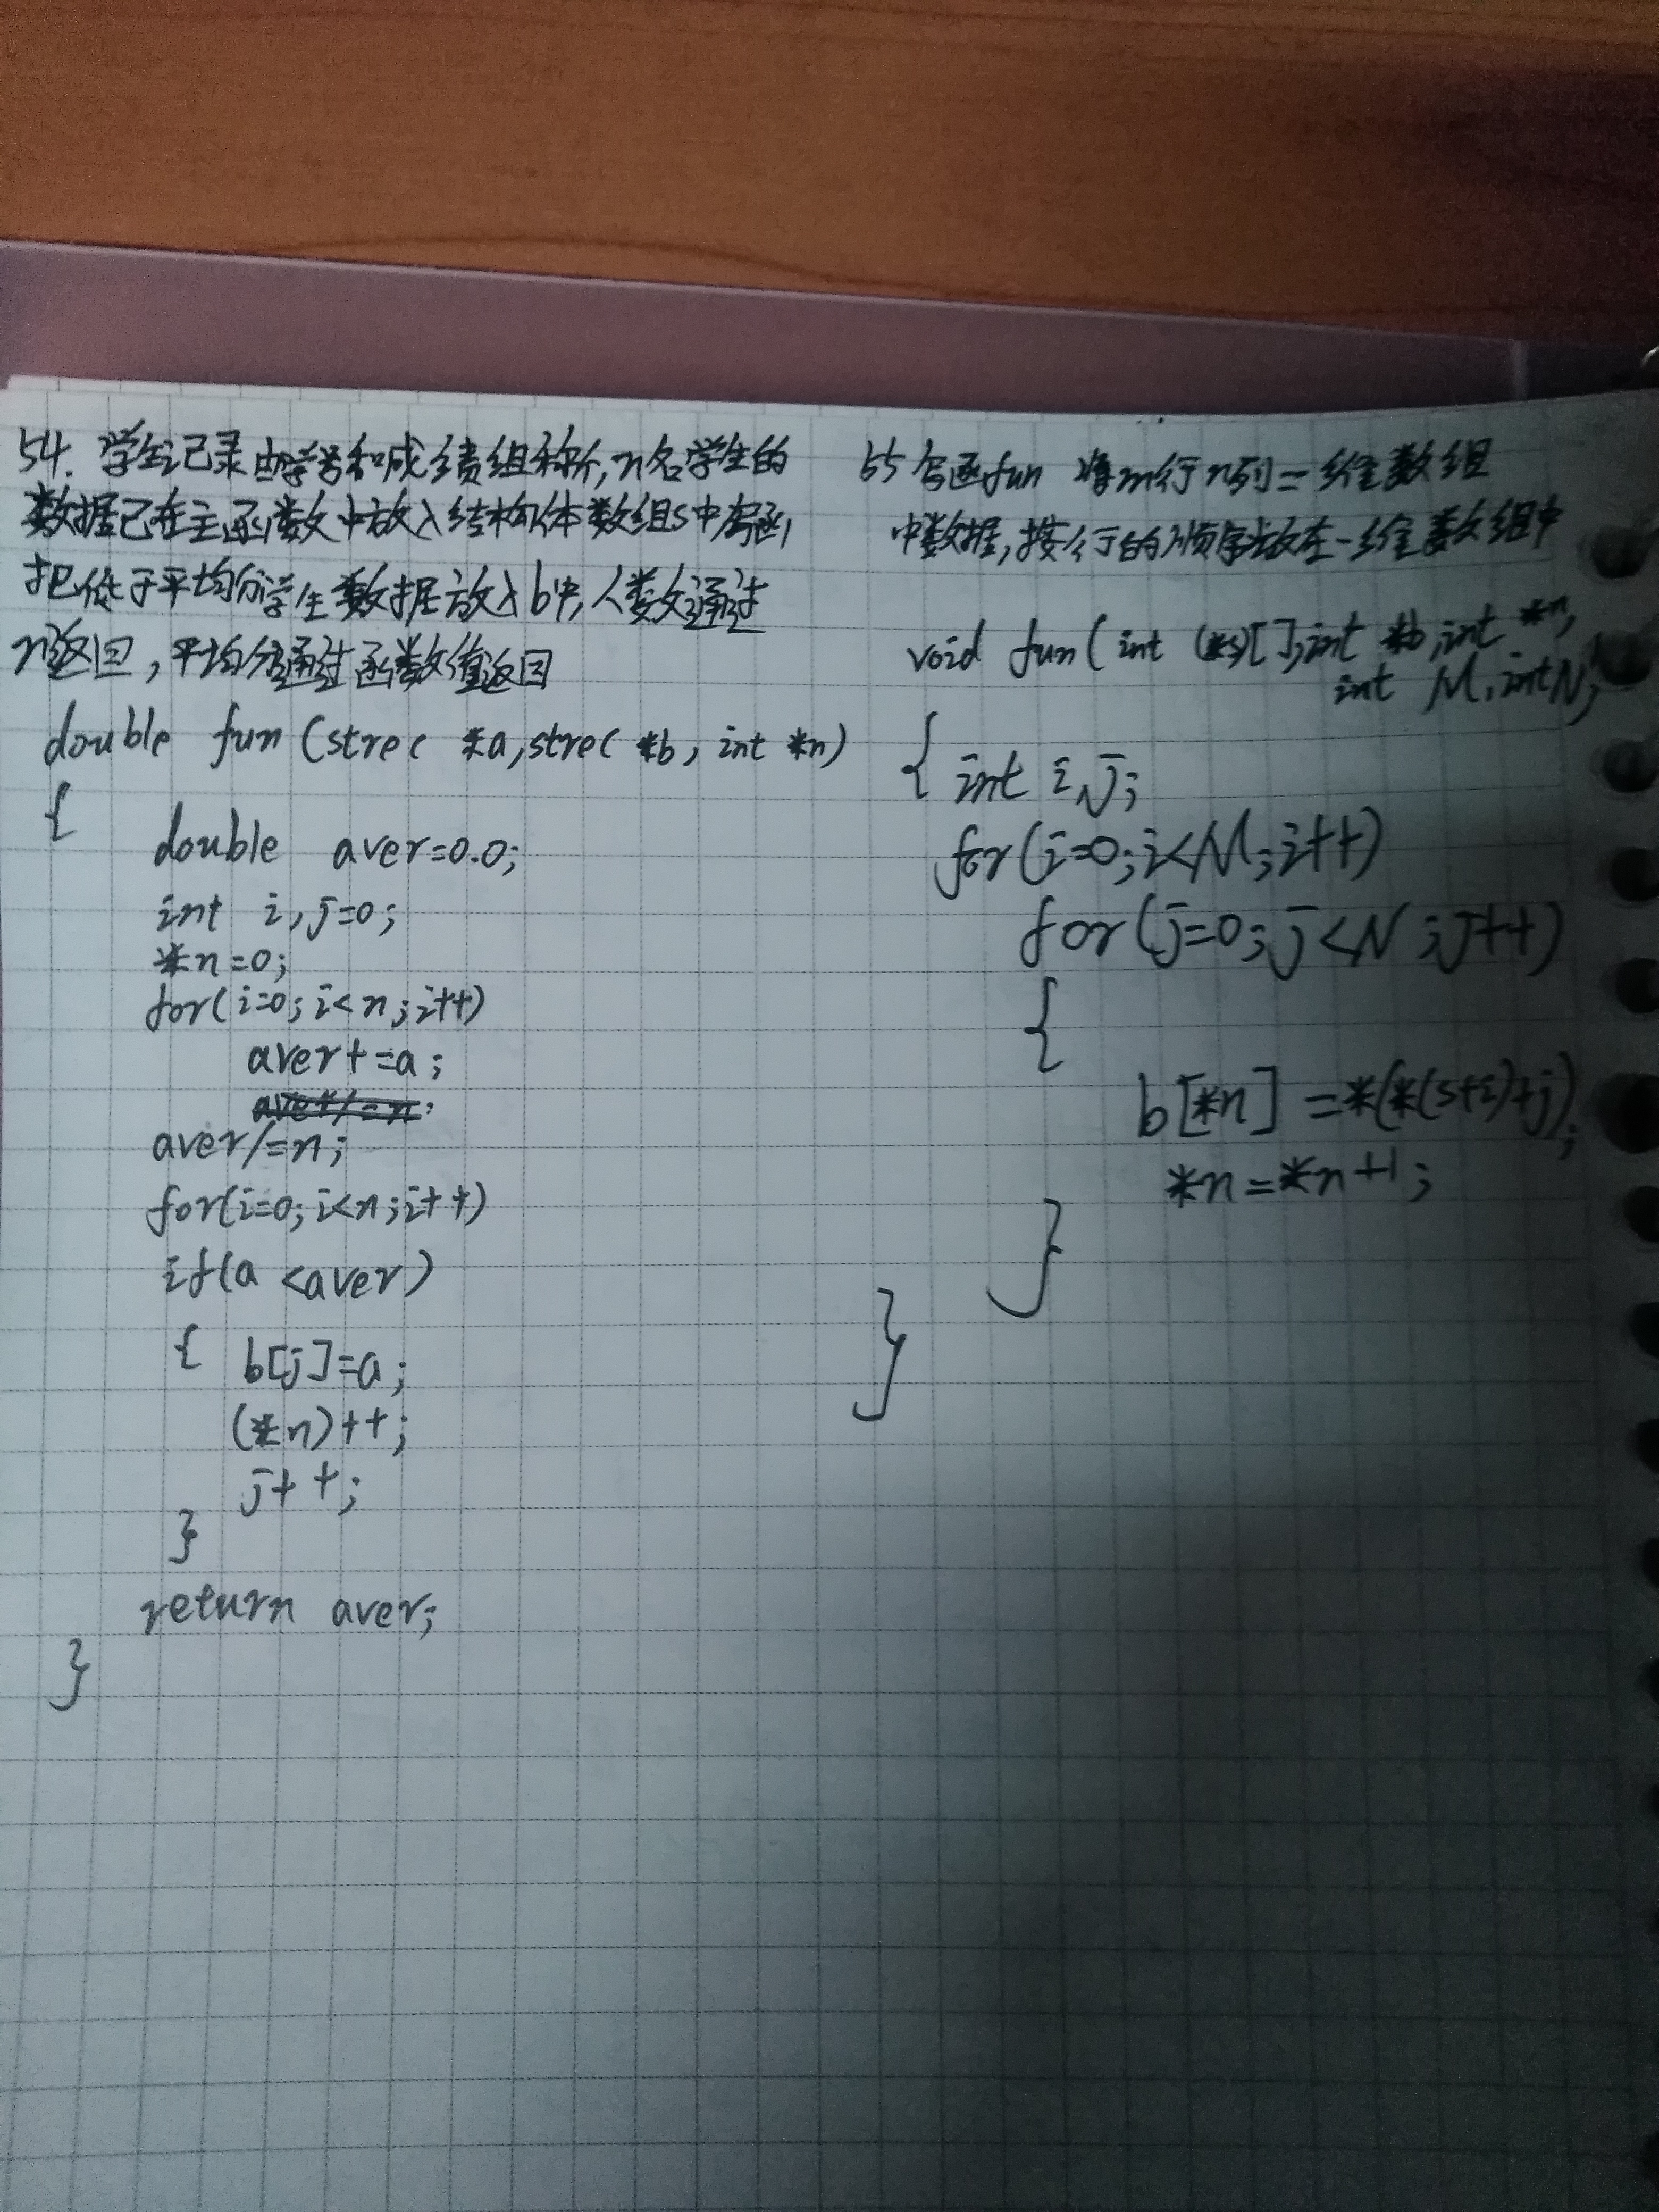 54. 学生记录由学号和成绩组称所,n名学生的
数据已在主函数中放入结构体数组S中写函
把低于平均分学生数据放入b中,人数通过
n返回,平均分通过函数值返回
double fun (strec *a,strec *b, int *n)
{
double aver=0.0;
int i,j=0;
*n=0;
for(i=0;i<n;i++)
aver+=a;
aver/=n;
aver/=n;
for(i=0;i<n;i++)
if(a<aver)
{ b[j]=a;
(*n)++;
j++;
}
return aver;
}
55 写函fun 将m行n列二维数组
中数据,按行的顺序放在一维数组中
void fun(int (*s)[],int *b,int *n,
int M,int N)
{ int i,j;
for(i=0;i<M;i++)
for(j=0;j<N;j++)
{
b[*n]=*(*(s+i)+j);
*n=*n+1;
}
}